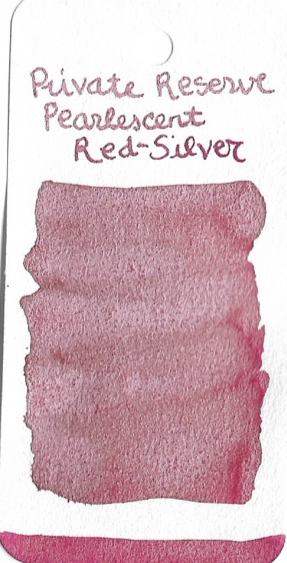 Private Reserve
Pearlescent
Red-Silver